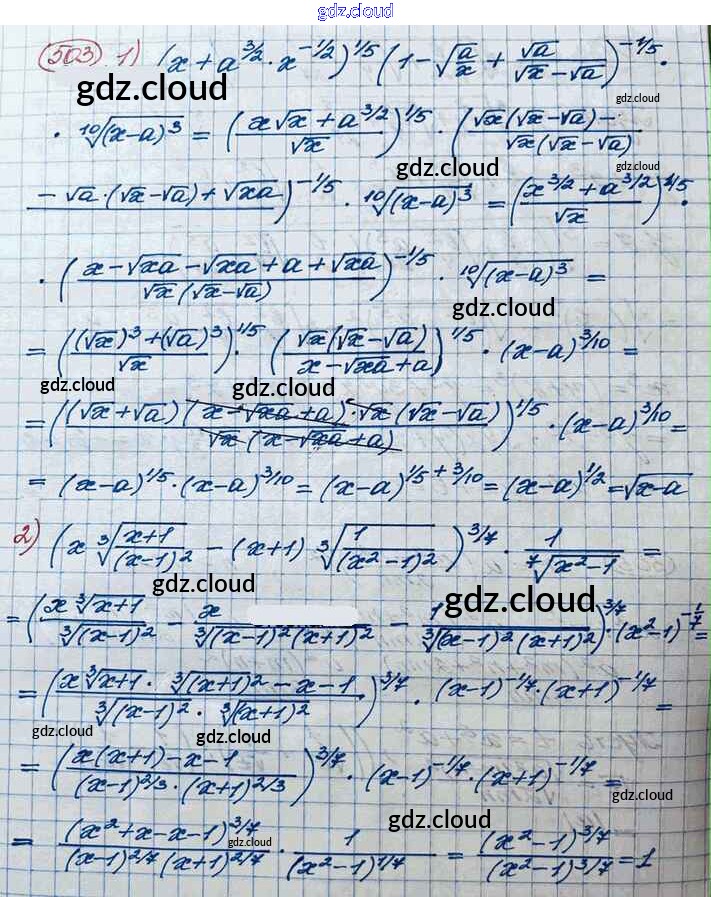 gdz.cloud
503 1) (x + a^{3/2} · x^{-1/2})^{1/5} (1 - √(a/x) + √a/(√x - √a))^{-1/5} ·
gdz.cloud gdz.cloud
· ¹⁰√((x-a)^3) = ((x√x + a^{3/2})/√x)^{1/5} · ((√x(√x - √a) -)/(√x(√x - √a))
gdz.cloud gdz.cloud
(- √a · (√x - √a) + √(xa)))^{-1/5} · ¹⁰√((x-a)^3) = ((x^{3/2} + a^{3/2})/√x)^{1/5} ·
· ((x - √(xa) - √(xa) + a + √(xa))/(√x (√x - √a)))^{-1/5} · ¹⁰√((x-a)^3) =
gdz.cloud
= (((√x)^3 + (√a)^3)/√x)^{1/5} · ((√x(√x - √a))/(x - √(xa) + a))^{1/5} · (x-a)^{3/10} =
gdz.cloud gdz.cloud
= (((√x + √a)(x - √(xa) + a) · √x (√x - √a))/(√x (x - √(xa) + a)))^{1/5} · (x-a)^{3/10} =
gdz.cloud
= (x-a)^{1/5} · (x-a)^{3/10} = (x-a)^{1/5 + 3/10} = (x-a)^{1/2} = √(x-a)
2) (x ³√((x+1)/(x-1)^2) - (x+1) ³√(1/(x^2-1)^2))^{3/7} · 1/⁷√(x^2-1) =
gdz.cloud gdz.cloud
= ((x ³√(x+1))/³√((x-1)^2) - x/³√((x-1)^2 (x+1)^2) - 1/³√((x-1)^2 (x+1)^2))^{3/7} · (x^2-1)^{-1/7} =
= ((x ³√(x+1) · ³√((x+1)^2) - x - 1)/(³√((x-1)^2) · ³√((x+1)^2)))^{3/7} · (x-1)^{-1/7} · (x+1)^{-1/7} =
gdz.cloud gdz.cloud
= ((x(x+1) - x - 1)/((x-1)^{2/3} · (x+1)^{2/3}))^{3/7} · (x-1)^{-1/7} · (x+1)^{-1/7} =
gdz.cloud
= (x^2 + x - x - 1)^{3/7}/((x-1)^{2/7} (x+1)^{2/7}) · 1/(x^2-1)^{1/7} = (x^2-1)^{3/7}/(x^2-1)^{3/7} = 1
gdz.cloud gdz.cloud